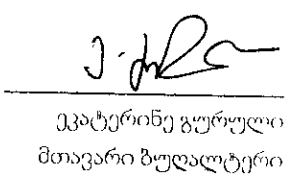 ეკატერინე გურული
მთავარი ბუღალტერი